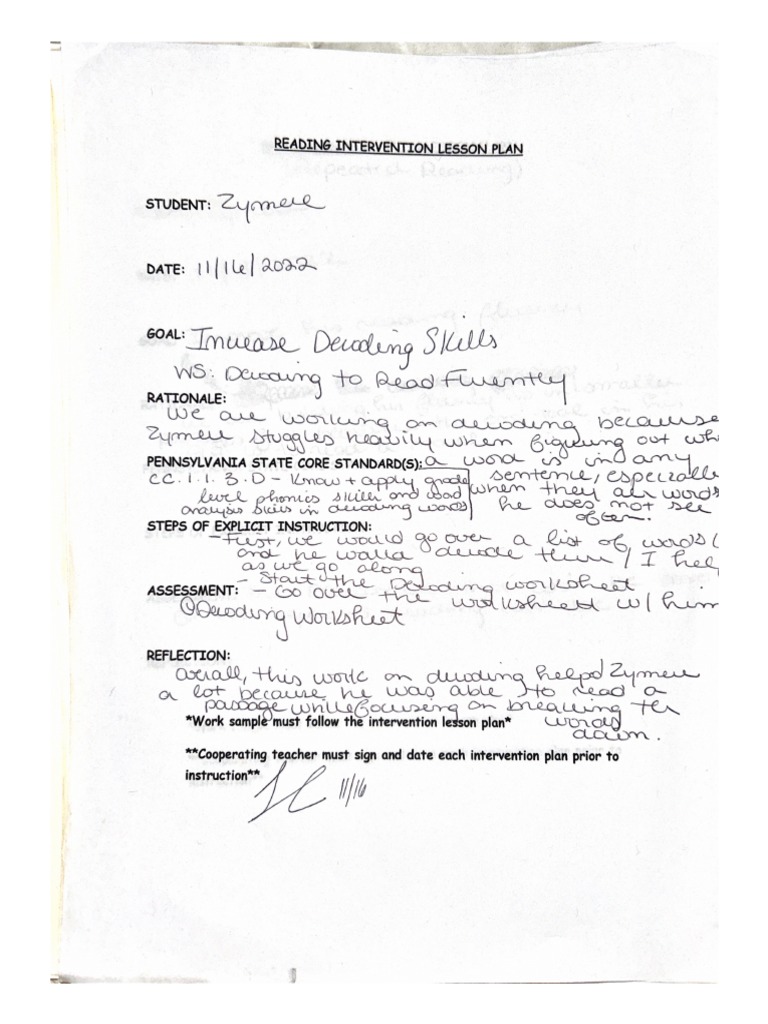 READING INTERVENTION LESSON PLAN
STUDENT: Zymere
DATE: 11/16/2022
GOAL: Increase Decoding Skills
WS: Decoding to Read Fluently
RATIONALE:
We are working on decoding because
Zymere stuggles heavily when figuring out
PENNSYLVANIA STATE CORE STANDARD(S): a word is in any
sentence, especially
when they are words
he does not see
often.
CC.1.1.3.D - Know + apply grade
level phonics skills and word
analysis skills in decoding words
STEPS OF EXPLICIT INSTRUCTION:
- First, we would go over a list of words
and he would decode them / I help
as we go along
- Start the Decoding worksheet
- Go over the worksheet w/ him
ASSESSMENT:
Decoding Worksheet
REFLECTION:
Overall, this work on decoding helped Zymere
a lot because he was able to read a
passage while focusing on breaking the
words
down.
*Work sample must follow the intervention lesson plan*
**Cooperating teacher must sign and date each intervention plan prior to
instruction**
11/16